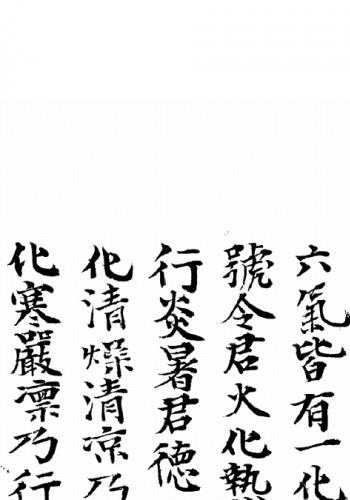 六氣皆有一化
號令君火化執
行炎暑君德
化清燥清凉乃
化寒嚴凛乃行